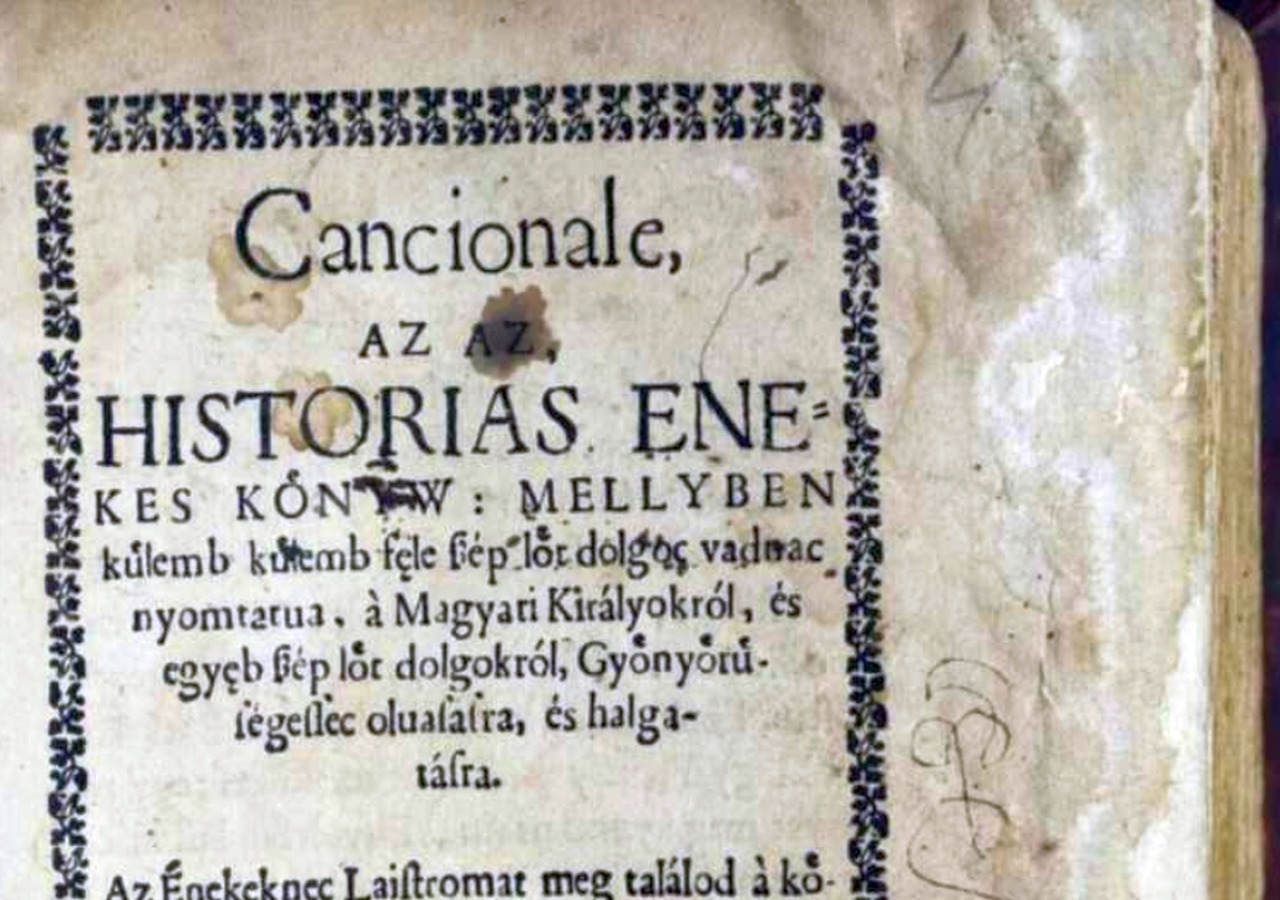 Cancionale,
AZ AZ,
HISTORIAS ENE=
KES KÖNYW : MELLYBEN
kuͤlemb kuͤlemb fęle ßép loͤt dolgoc vadnac
nyomtatua, à Magyari Királyokról, és
egyęb ßép loͤt dolgokról, Gyoͤnyoͤruͤ-
ſégeſſec oluaſaſra, és halga-
táſra.
Az Énekeknec Laiſtromat meg találod à koͤ-